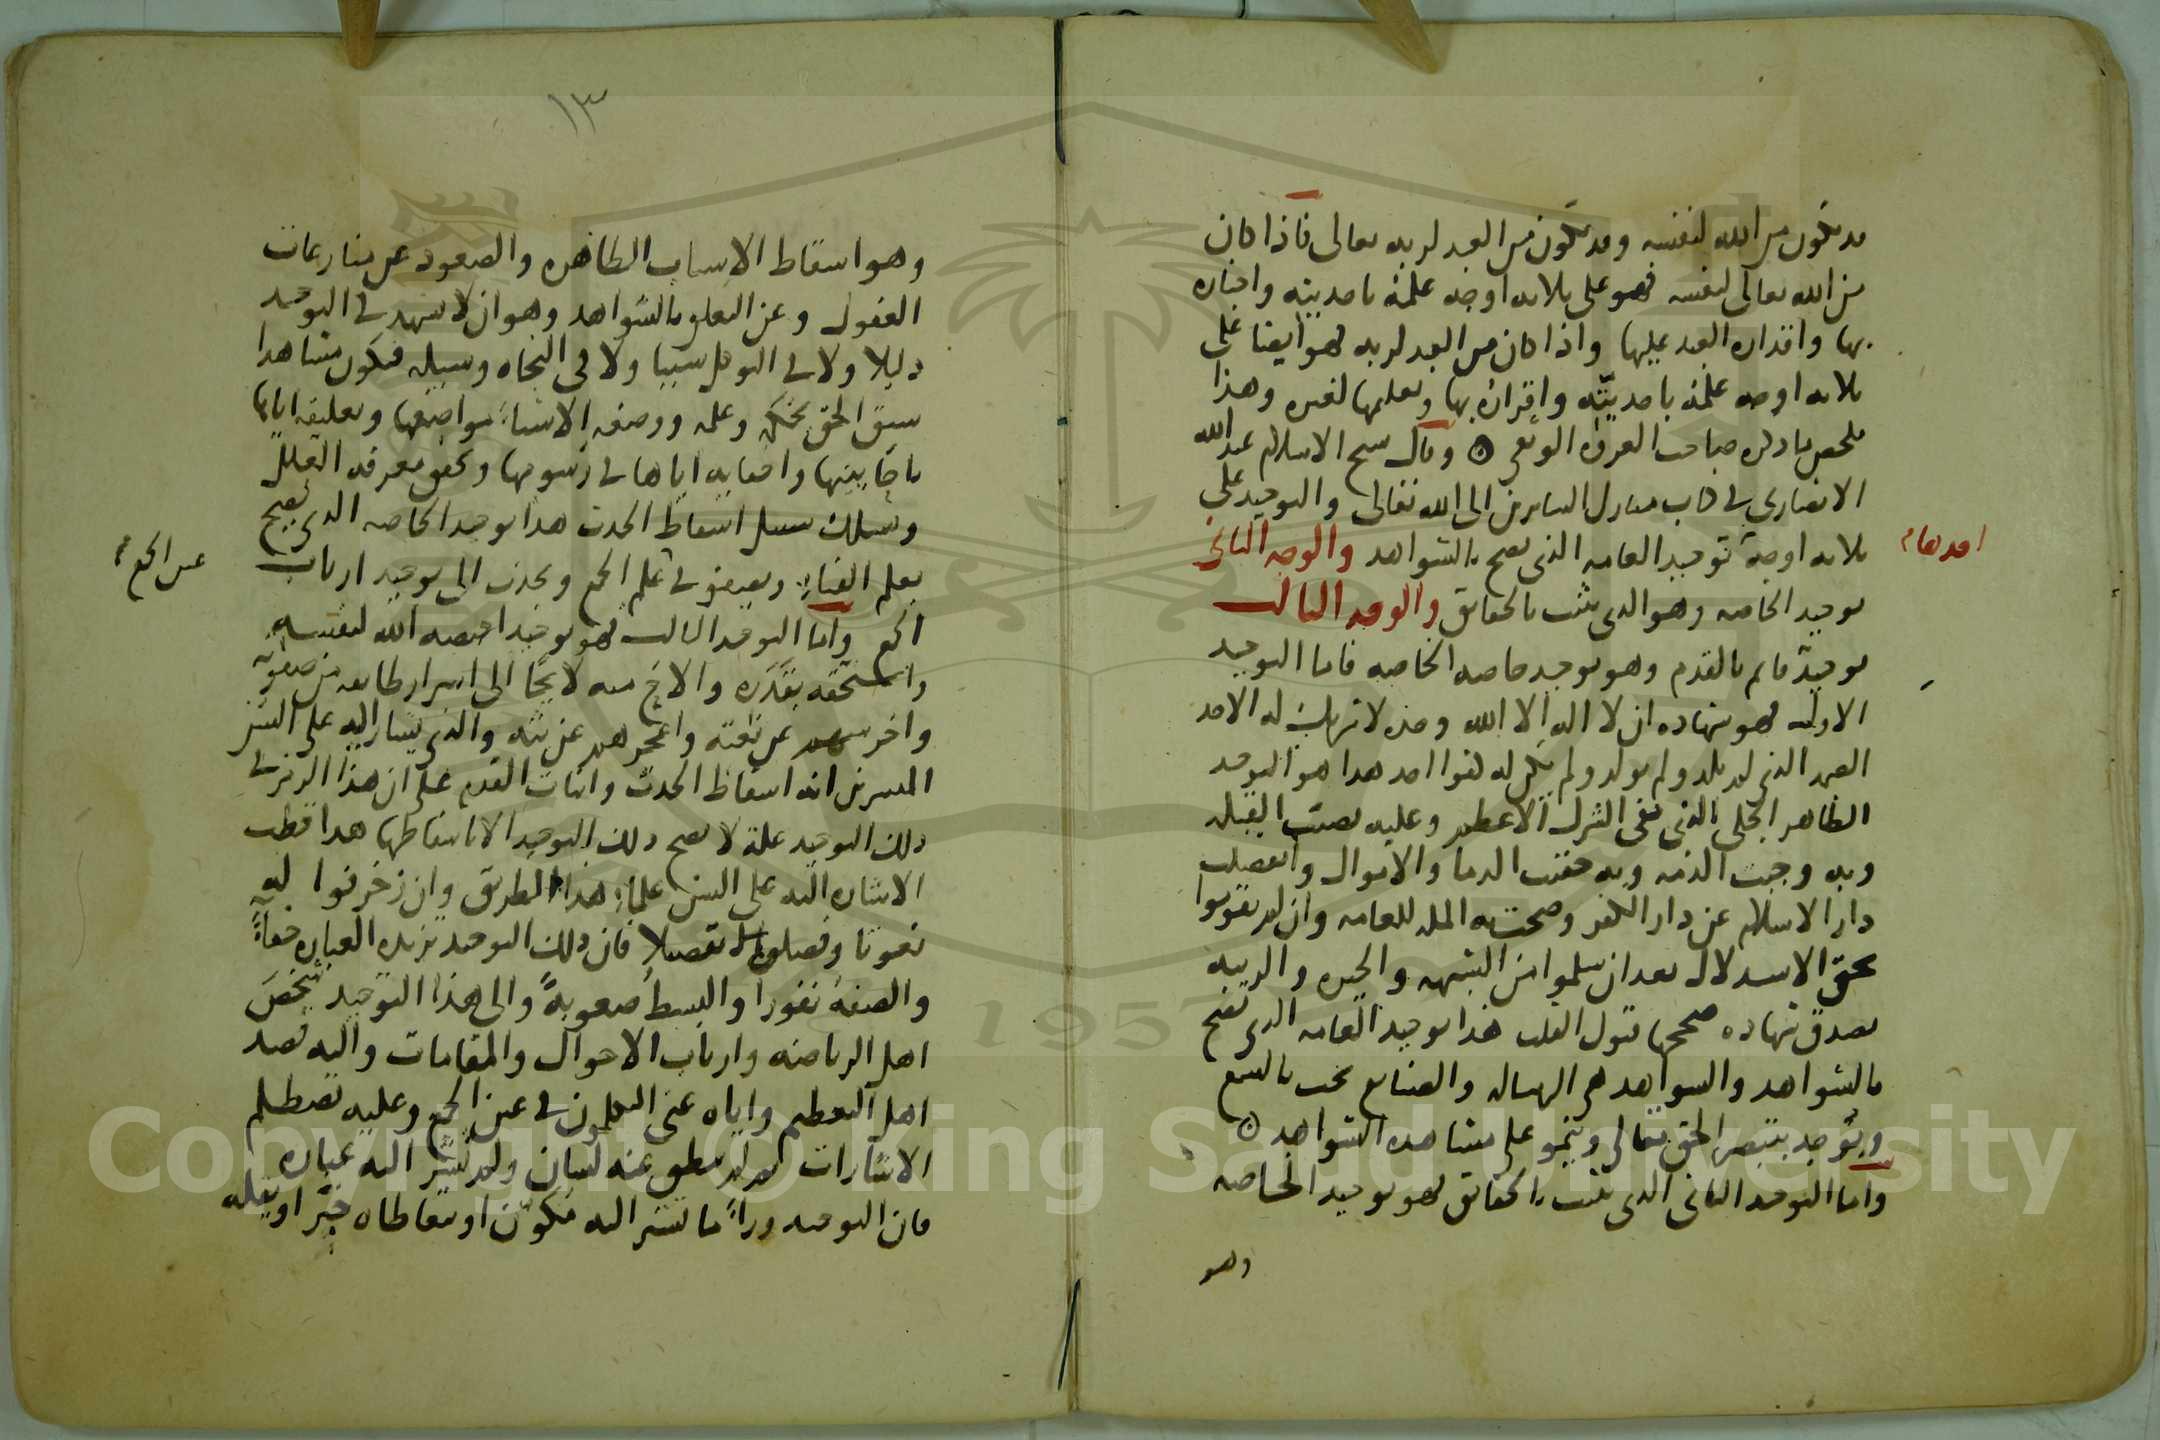 قد يكون من الله لنفسه وقد يكون من العبد لربه تعالى فاذا كان
من الله تعالى لنفسه فهو على ثلاثه اوجه علمه باحديته واخباره
بها واقداره العبد عليها واذا كان من العبد لربه فهو ايضا على
ثلاثه اوجه علمه باحديته واقراره بها وتعليمها لغيره وهذا
ملخص ما ذكره صاحب العرف الوثقى ه وقال شيخ الاسلام عبد الله
الانصاري في كتاب منازل السايرين الى الله تعالى والتوحيد على
ثلاثه اوجه توحيد العامه الذي يصح بالشواهد والوجه الثاني
احدهام
توحيد الخاصه وهو الذي يثبت بالحقايق والوجه الثالث
توحيد قايم بالقدم وهو توحيد خاصه الخاصه فاما التوحيد
الاول فهو شهاده ان لا اله الا الله وحده لا شريك له الاحد
الصمد الذي لم يلد ولم يولد ولم يكن له كفوا احد هذا هو التوحيد
الظاهر الجلي الذي نفى الشرك الاعظم وعليه نصبت القبله
وبه وجبت الذمه وبه حقنت الدما والاموال وانفصلت
دار الاسلام عن دار الكفر وصحت به المله للعامه وان لم يقوموا
بحق الاستدلال بعد ان سلموا من الشبهه والحيره والريبه
بصدق شهاده صححها قبول القلب هذا توحيد العامه الذي يصح
بالشواهد والشواهد هي الرساله والصنايع يجب بالسمع
ويوجد بتبصير الحق تعالى وينمو على مشاهده الشواهد ه
واما التوحيد الثاني الذي يثبت بالحقايق فهو توحيد الخاصه
وهو
١٣
وهو اسقاط الاسباب الظاهره والصعود عن منازعات
العقول وعن التعلق بالشواهد وهو ان لا تشهد في التوحيد
دليلا ولا في التوكل سببا ولا في النجاه وسيله فتكون مشاهدا
سبق الحق بحكمه وعلمه ووضعه الاشياء مواضعها وتعليقه اياها
باحايينها واخفايه اياها في رسومها وتحقق معرفه العلل
وتسلك سبيل اسقاط الحدث هذا توحيد الخاصه الذي يصح
بعلم الفناء ويصفو في علم الجمع ويجذب الى توحيد ارباب
عين الجمع
الجمع واما التوحيد الثالث فهو توحيد اختصه الله لنفسه
واستحقه بقدره والاح منه لايحا الى اسرار طايفه من صفوته
واخرسهم عن نعته واعجزهم عن بثه والذي يشار اليه على السن
المشيرين انه اسقاط الحدث واثبات القدم على ان هذا الرمز في
ذلك التوحيد علة لا يصح ذلك التوحيد الا باسقاطها هذا قطب
الاشاره اليه على السن علماء هذا الطريق وان زخرفوا له
نعوتا وفصلوه تفصيلا فان ذلك التوحيد تزيده العباره خفاءً
والصفة نفورا والبسط صعوبةً والى هذا التوحيد شخص
اهل الرياضه وارباب الاحوال والمقامات واليه قصد
اهل التعظيم واياه عنى المتكلمون في عين الجمع وعليه تصطلم
الاشارات ثم لم ينطق عنه لسان ولم تشر اليه عباره
فان التوحيد وراء ما يشير اليه مكون او يتعاطاه حيّز او يقله